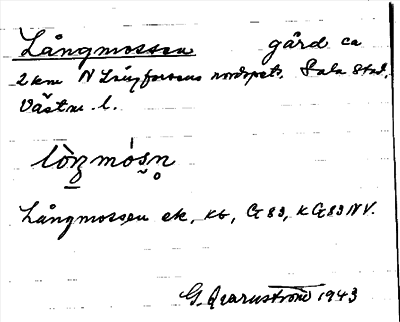 Långmossen gård ca
2 km N Långforsens nordspets. Sala stad,
Västm. l.
lòŋmósn̥
Långmossen ek, kb, G83, KG83NV.
G. Qvarnström 1943